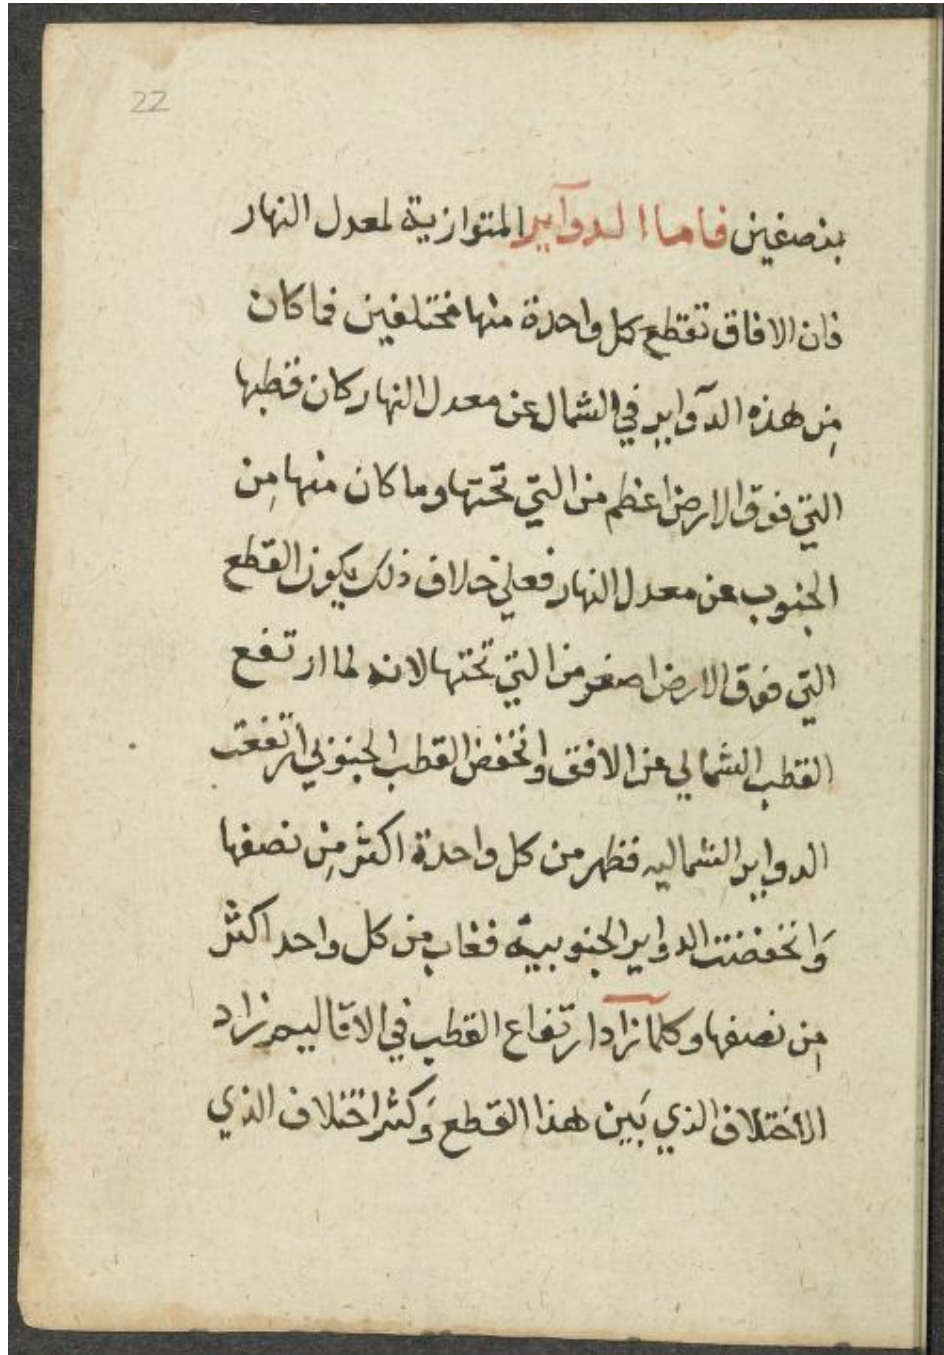 22
بنصفين فاما الدوآير المتوازية لمعدل النهار
فان الافاق تقطع كل واحدة منها مختلفين فما كان
مِن هذه الدآواير في الشمال عن معدل النهار كان قطبها
التي فوق الارض اعظم من التي تحتها وما كان منها مِن
الجنوب عن معدل النهار فعلي خلاف ذلك يكون القطع
التي فوق الارض اصغر من التي تحتها لانه لما ارتفع
القطب الشمالي عن الافق وانخفض القطب الجنوبي ارتفعت
الدواير الشماليه فظهر من كل واحدة اكثر مِن نصفها
وَانخفضت الدواير الجنوبية فغاب مِن كل واحد اكثر
مِن نصفها وكلما زاد ارتفاع القطب في الاقاليم زاد
الاختلاف الذي بَين هذا القطع وَكثر اختلاف الذي